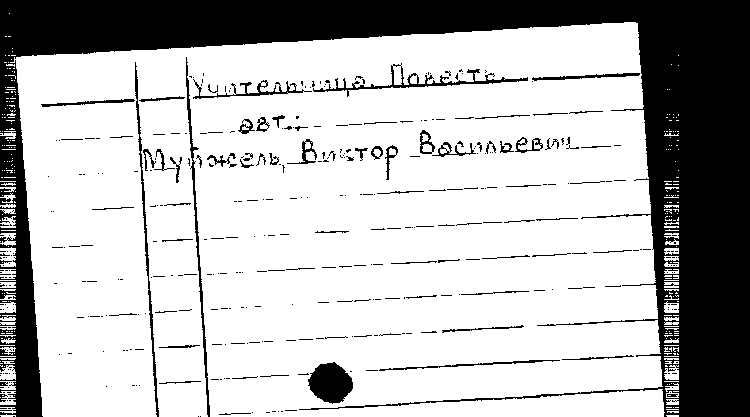 Учительница. Повесть.
авт.:
Муйжель, Виктор Васильевич